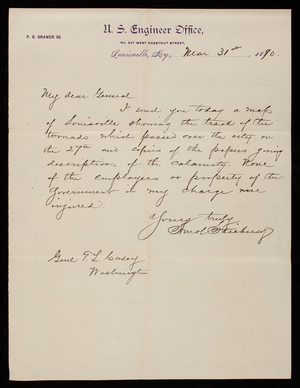 P. O. DRAWER 90.
U. S. Engineer Office,
No. 207 WEST CHESTNUT STREET,
Louisville, Ky., Mar 31st, 1890.
My dear General
I send you today a map
of Louisville showing the track of the
tornado which passed over the city on
the 27th and copies of the papers giving
descriptions of the calamity. None
of the employees or property of the
Government in my charge were
injured.
Yours truly
Genl T L Casey
Washington